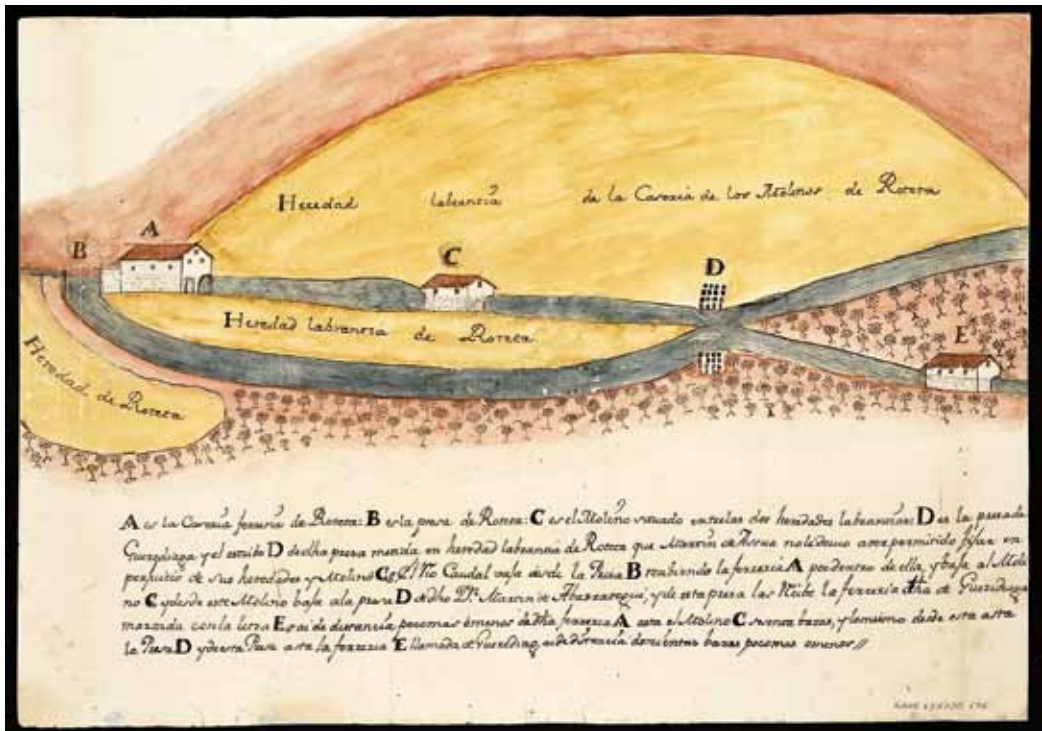 Heredad labrancia de la Caseria de los Molinos de Roteta
B A
C
D
Heredad labrancia de Roteta
E
Heredad de Roteta
A es la Caseria ferreria de Roteta: B es la presa de Roteta: C es el Molino situado entre las dos heredades labrancias: D es la presa de
y el estribo D de dha presa metida en heredad labrancia de Roteta que Martin de no le devio aver permitido fijar en
perjuicio de sus heredades y Molino C El Rio Caudal vaja desde la Presa B reciviendo la ferreria A por dentro de ella, y baja al Moli
no C y desde este Molino baja a la presa D de dho Dn Martin de y de esta presa las Recibe la ferreria dha de
marcada con la letra E ai de distancia poco mas o menos de dha ferreria A asta el Molino C baras, y lo mismo desde este asta
la Presa D y de esta Presa asta la ferreria E llamada de ai de distancia docientas baras poco mas o menos //